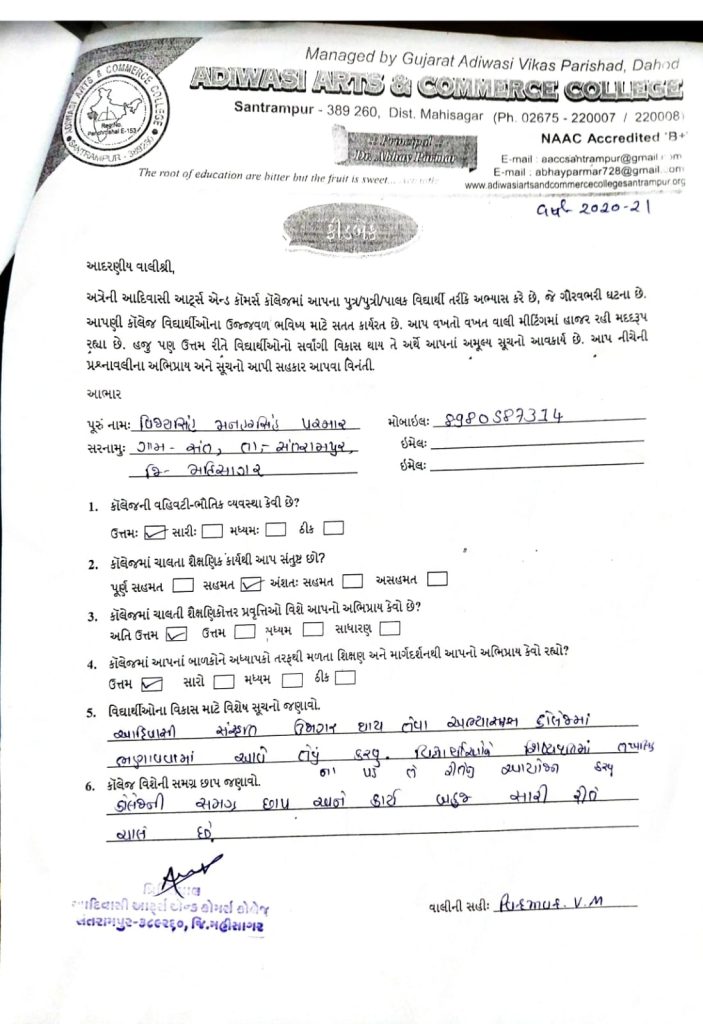 Managed by Gujarat Adiwasi Vikas Parishad, Dahod
ADIWASI ARTS & COMMERCE COLLEGE
Santrampur - 389 260, Dist. Mahisagar (Ph. 02675 - 220007 / 220008)
ADIWASI ARTS & COMMERCE COLLEGE
Reg. No.
Panchmahal E-153
SANTRAMPUR - 389260
:: Principal ::
Dr. Abhay Parmar
NAAC Accredited 'B+'
E-mail : aaccsahtrampur@gmail.com
E-mail : abhayparmar728@gmail.com
www.adiwasiartsandcommercecollegesantrampur.org
The root of education are bitter but the fruit is sweet...
વર્ષ 2020-21
ફીડબેક
આદરણીય વાલીશ્રી,
અત્રેની આદિવાસી આર્ટ્સ એન્ડ કૉમર્સ કૉલેજમાં આપના પુત્ર/પુત્રી/પાલક વિદ્યાર્થી તરીકે અભ્યાસ કરે છે, જે ગૌરવભરી ઘટના છે.
આપણી કૉલેજ વિદ્યાર્થીઓના ઉજ્જવળ ભવિષ્ય માટે સતત કાર્યરત છે. આપ વખતો વખત વાલી મીટિંગમાં હાજર રહી મદદરૂપ
રહ્યા છે. હજુ પણ ઉત્તમ રીતે વિદ્યાર્થીઓનો સર્વાંગી વિકાસ થાય તે અર્થે આપનાં અમૂલ્ય સૂચનો આવકાર્ય છે. આપ નીચેની
પ્રશ્નાવલીના અભિપ્રાય અને સૂચનો આપી સહકાર આપવા વિનંતી.
આભાર
પૂરું નામઃ વિજયસિંહ મનહરસિંહ પરમાર મોબાઇલઃ 8980587314
સરનામુઃ ગામ - સંત, તા - સંતરામપુર, ઇમેલઃ
જિ - મહિસાગર ઇમેલઃ
1. કૉલેજની વહિવટી-ભૌતિક વ્યવસ્થા કેવી છે?
ઉત્તમઃ ☑ સારીઃ ☐ મધ્યમઃ ☐ ઠીક ☐
2. કૉલેજમાં ચાલતા શૈક્ષણિક કાર્યથી આપ સંતુષ્ટ છો?
પૂર્ણ સહમત ☐ સહમત ☑ અંશતઃ સહમત ☐ અસહમત ☐
3. કૉલેજમાં ચાલતી શૈક્ષણિકોત્તર પ્રવૃત્તિઓ વિશે આપનો અભિપ્રાય કેવો છે?
અતિ ઉત્તમ ☑ ઉત્તમ ☐ મધ્યમ ☐ સાધારણ ☐
4. કૉલેજમાં આપનાં બાળકોને અધ્યાપકો તરફથી મળતા શિક્ષણ અને માર્ગદર્શનથી આપનો અભિપ્રાય કેવો રહ્યો?
ઉત્તમ ☑ સારો ☐ મધ્યમ ☐ ઠીક ☐
5. વિદ્યાર્થીઓના વિકાસ માટે વિશેષ સૂચનો જણાવો.
આદિવાસી થાય તેવા અભ્યાસક્રમ કોલેજમાં
ભણાવવામાં આવે તેવું કરવુ. વિદ્યાર્થીઓને
ના પડે તે રીતનું આયોજન કરવુ
6. કૉલેજ વિશેની સમગ્ર છાપ જણાવો.
કોલેજની સમગ્ર છાપ અને કાર્ય બહુજ સારી રીતે
ચાલે છે.
આદિવાસી આર્ટ્સ એન્ડ કોમર્સ કોલેજ
સંતરામપુર-૩૮૯૨૬૦, જિ.મહીસાગર
વાલીની સહીઃ Parmar. V. M